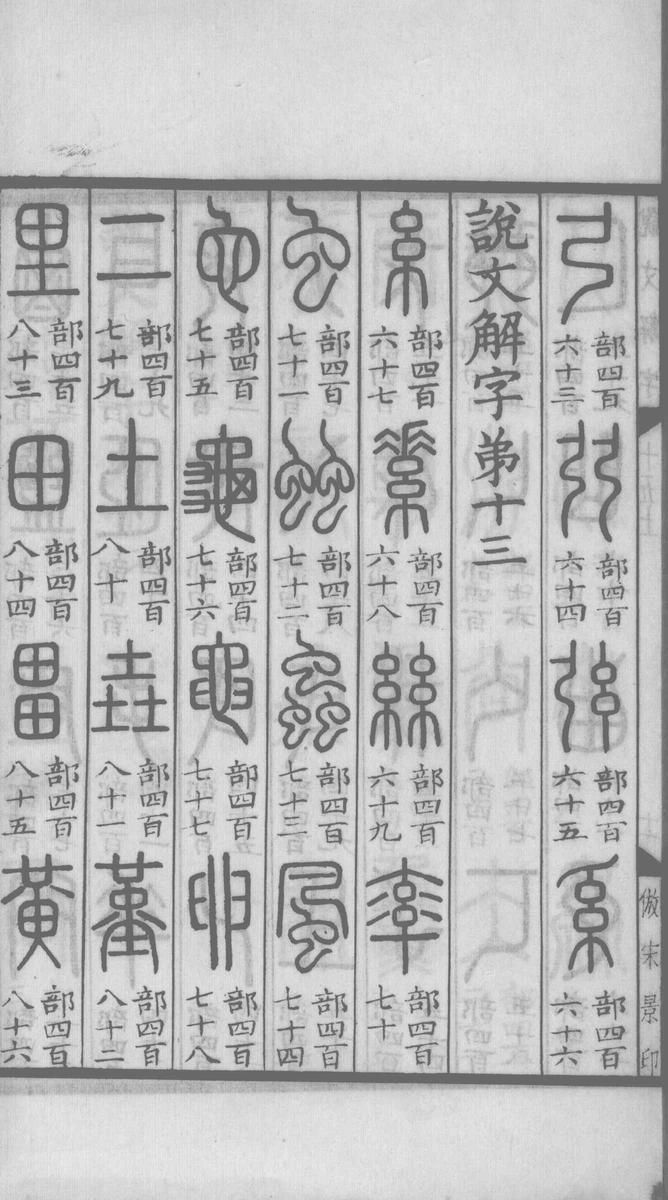 說文解字
倣宋景印
弓部四百六十三 弜部四百六十四 弦部四百六十五 系部四百六十六
說文解字弟十三
糸部四百六十七 素部四百六十八 絲部四百六十九 率部四百七十
虫部四百七十一 䖵部四百七十二 蟲部四百七十三 風部四百七十四
它部四百七十五 龜部四百七十六 黽部四百七十七 卵部四百七十八
二部四百七十九 土部四百八十 垚部四百八十一 堇部四百八十二
里部四百八十三 田部四百八十四 畕部四百八十五 黃部四百八十六